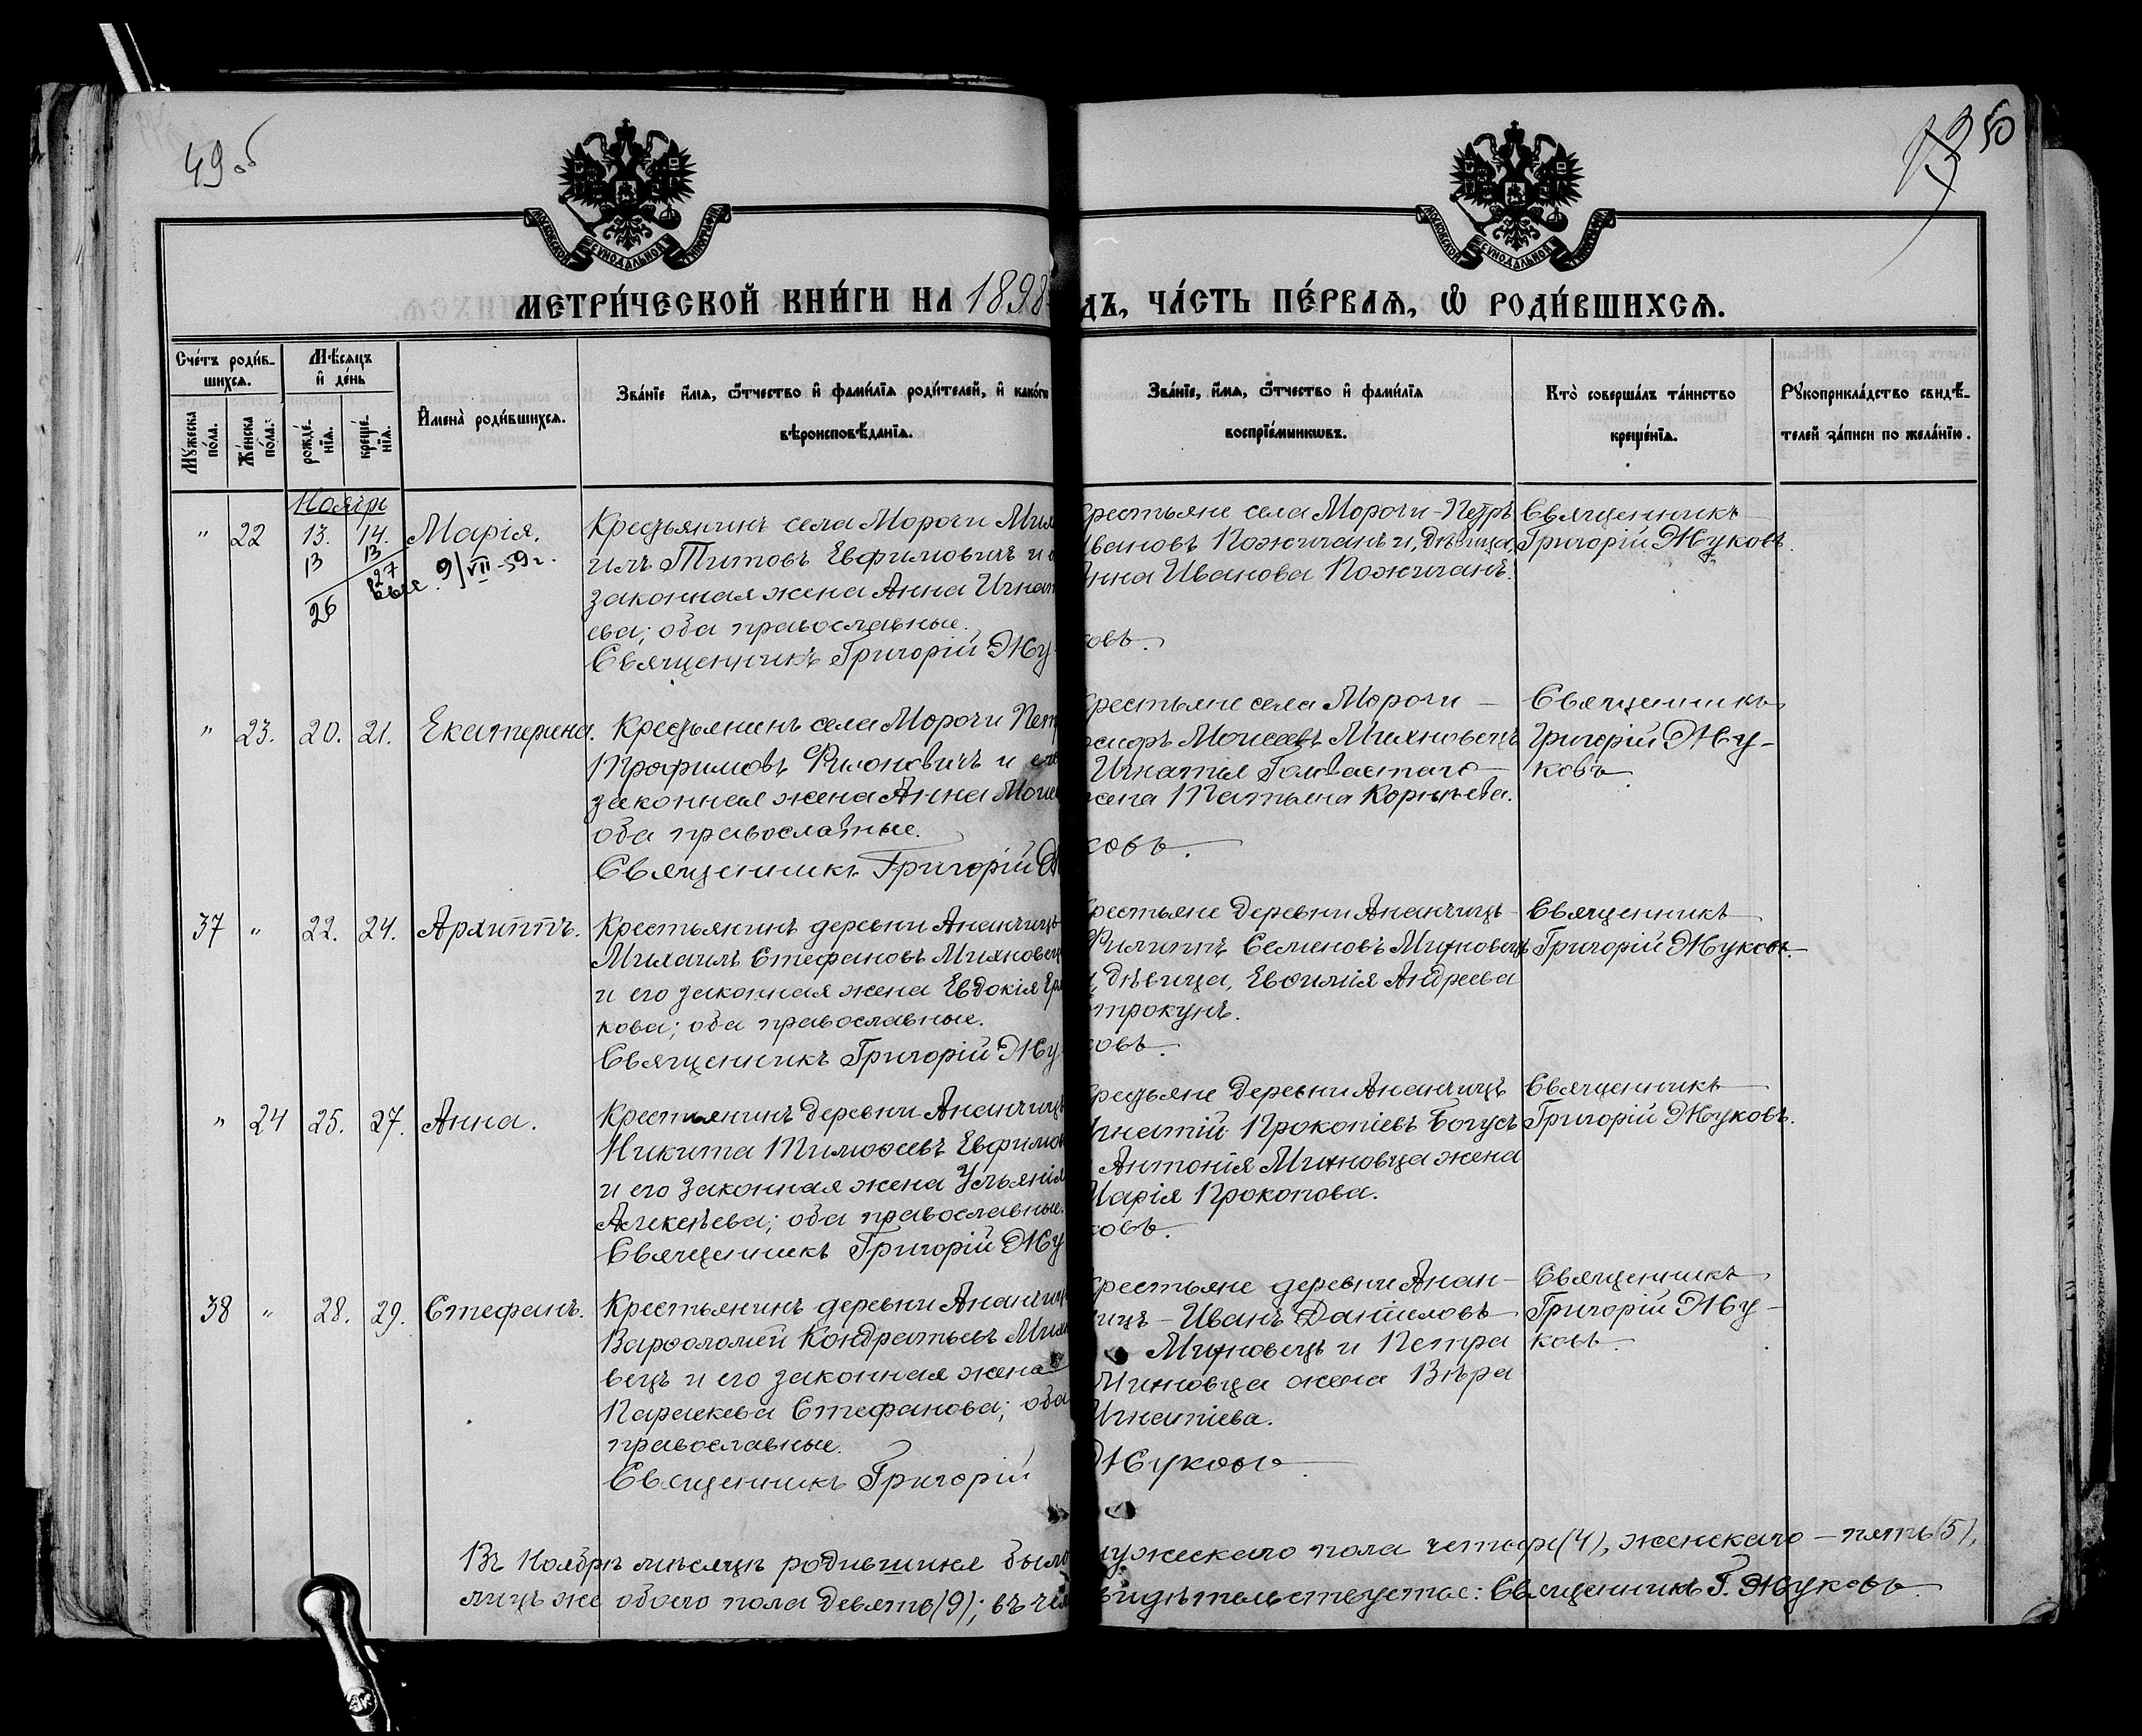 49 об
50
МОСКОВСКОЙ СУНОДАЛЬНОЙ ТИПОГРАФІИ
МОСКОВСКОЙ СУНОДАЛЬНОЙ ТИПОГРАФІИ
МЕТРИ́ЧЕСКОЙ КНИ́ГИ НА 1898
ДЪ, ЧА́СТЬ ПЕ́РВАѦ, Ѡ РОДИ́ВШИХСѦ.
Сче́тъ роди́в-
шихсѧ.
Му́жеска по́ла.
Же́нска по́ла.
Мѣ́сѧцъ
и де́нь
рожде́-
нїѧ.
креще́-
нїѧ.
Имена̀ роди́вшихсѧ.
Зва́нїе и́мѧ, ѻ́тчество и фами́лїѧ роди́телей, и како́гѡ
вѣроисповѣ́данїѧ.
Зва́нїе, и́мѧ, ѻ́тчество и фами́лїѧ
воспрїе́мникѡвъ.
Кто̀ соверша́лъ та́инство
креще́нїѧ.
Рꙋкоприкла́дство свидѣ́-
телей за́писи по жела́нїю.
Ноябрь
" 22 13. 14. Марія.
13 13
26 27
9/VII-59г.
Крестьянинъ села Морочи Миха
илъ Титовъ Евфимовичъ и е
законная жена Анна Игнат
ева; оба православные.
Священникъ Григорій Жу
рестьяне села Морочи - Петръ
Ивановъ Пожичанъ и, дѣвица,
Анна Иванова Пожичанъ.
ковъ.
Священникъ
Григорій Жуковъ.
" 23. 20. 21. Екатерина.
Крестьянинъ села Морочи Пет
Трофимовъ Филоновичъ и его
законная жена Анна Моисе
оба православные.
Священникъ Григорій Ж
рестьяне села Морочи —
осифъ Моисеевъ Михновецъ
Игнатія
жена Татьяна Корнѣева.
ковъ.
Священникъ
Григорій Жу-
ковъ.
37 " 22. 24. Архиппъ.
Крестьянинъ деревни Ананчицъ
Михаилъ Стефановъ Михновец
и его законная жена Евдокія Ер
кова; оба православные.
Священникъ Григорій Жу
рестьяне деревни Ананчицъ
Филиппъ Семеновъ Михновецъ
и, дѣвица, Евфимія Андреева
трокунъ.
ковъ.
Священникъ
Григорій Жуковъ.
" 24 25. 27. Анна.
Крестьянинъ деревни Ананчицъ
Никита Тимоѳеевъ Евфимов
и его законная жена Ульянія
Алексѣева; оба православные.
Священникъ Григорій Жу
рестьяне деревни Ананчицъ
Игнатій Прокопіевъ Богусъ
Антонія Михновца жена
Марія Прокопова.
ковъ.
Священникъ
Григорій Жуковъ.
38 " 28. 29. Стефанъ.
Крестьянинъ деревни Ананчиц
Варѳоломей Кондратьевъ Михно
вецъ и его законная жена
Параскева Стефанова; оба
православные.
Священникъ Григорій
рестьяне деревни Анан-
чицъ - Иванъ Даниловъ
Михновецъ и Петра
Михновца жена Вѣра
Игнатіева.
Жуковъ.
Священникъ
Григорій Жу-
ковъ.
Въ Ноябрѣ мѣсяцѣ родившихся было
мужескаго пола четыре (4), женскаго — пять (5),
лицъ же обоего пола девять (9); въ чем
свидѣтельствуетъ: Священникъ Г. Жуковъ